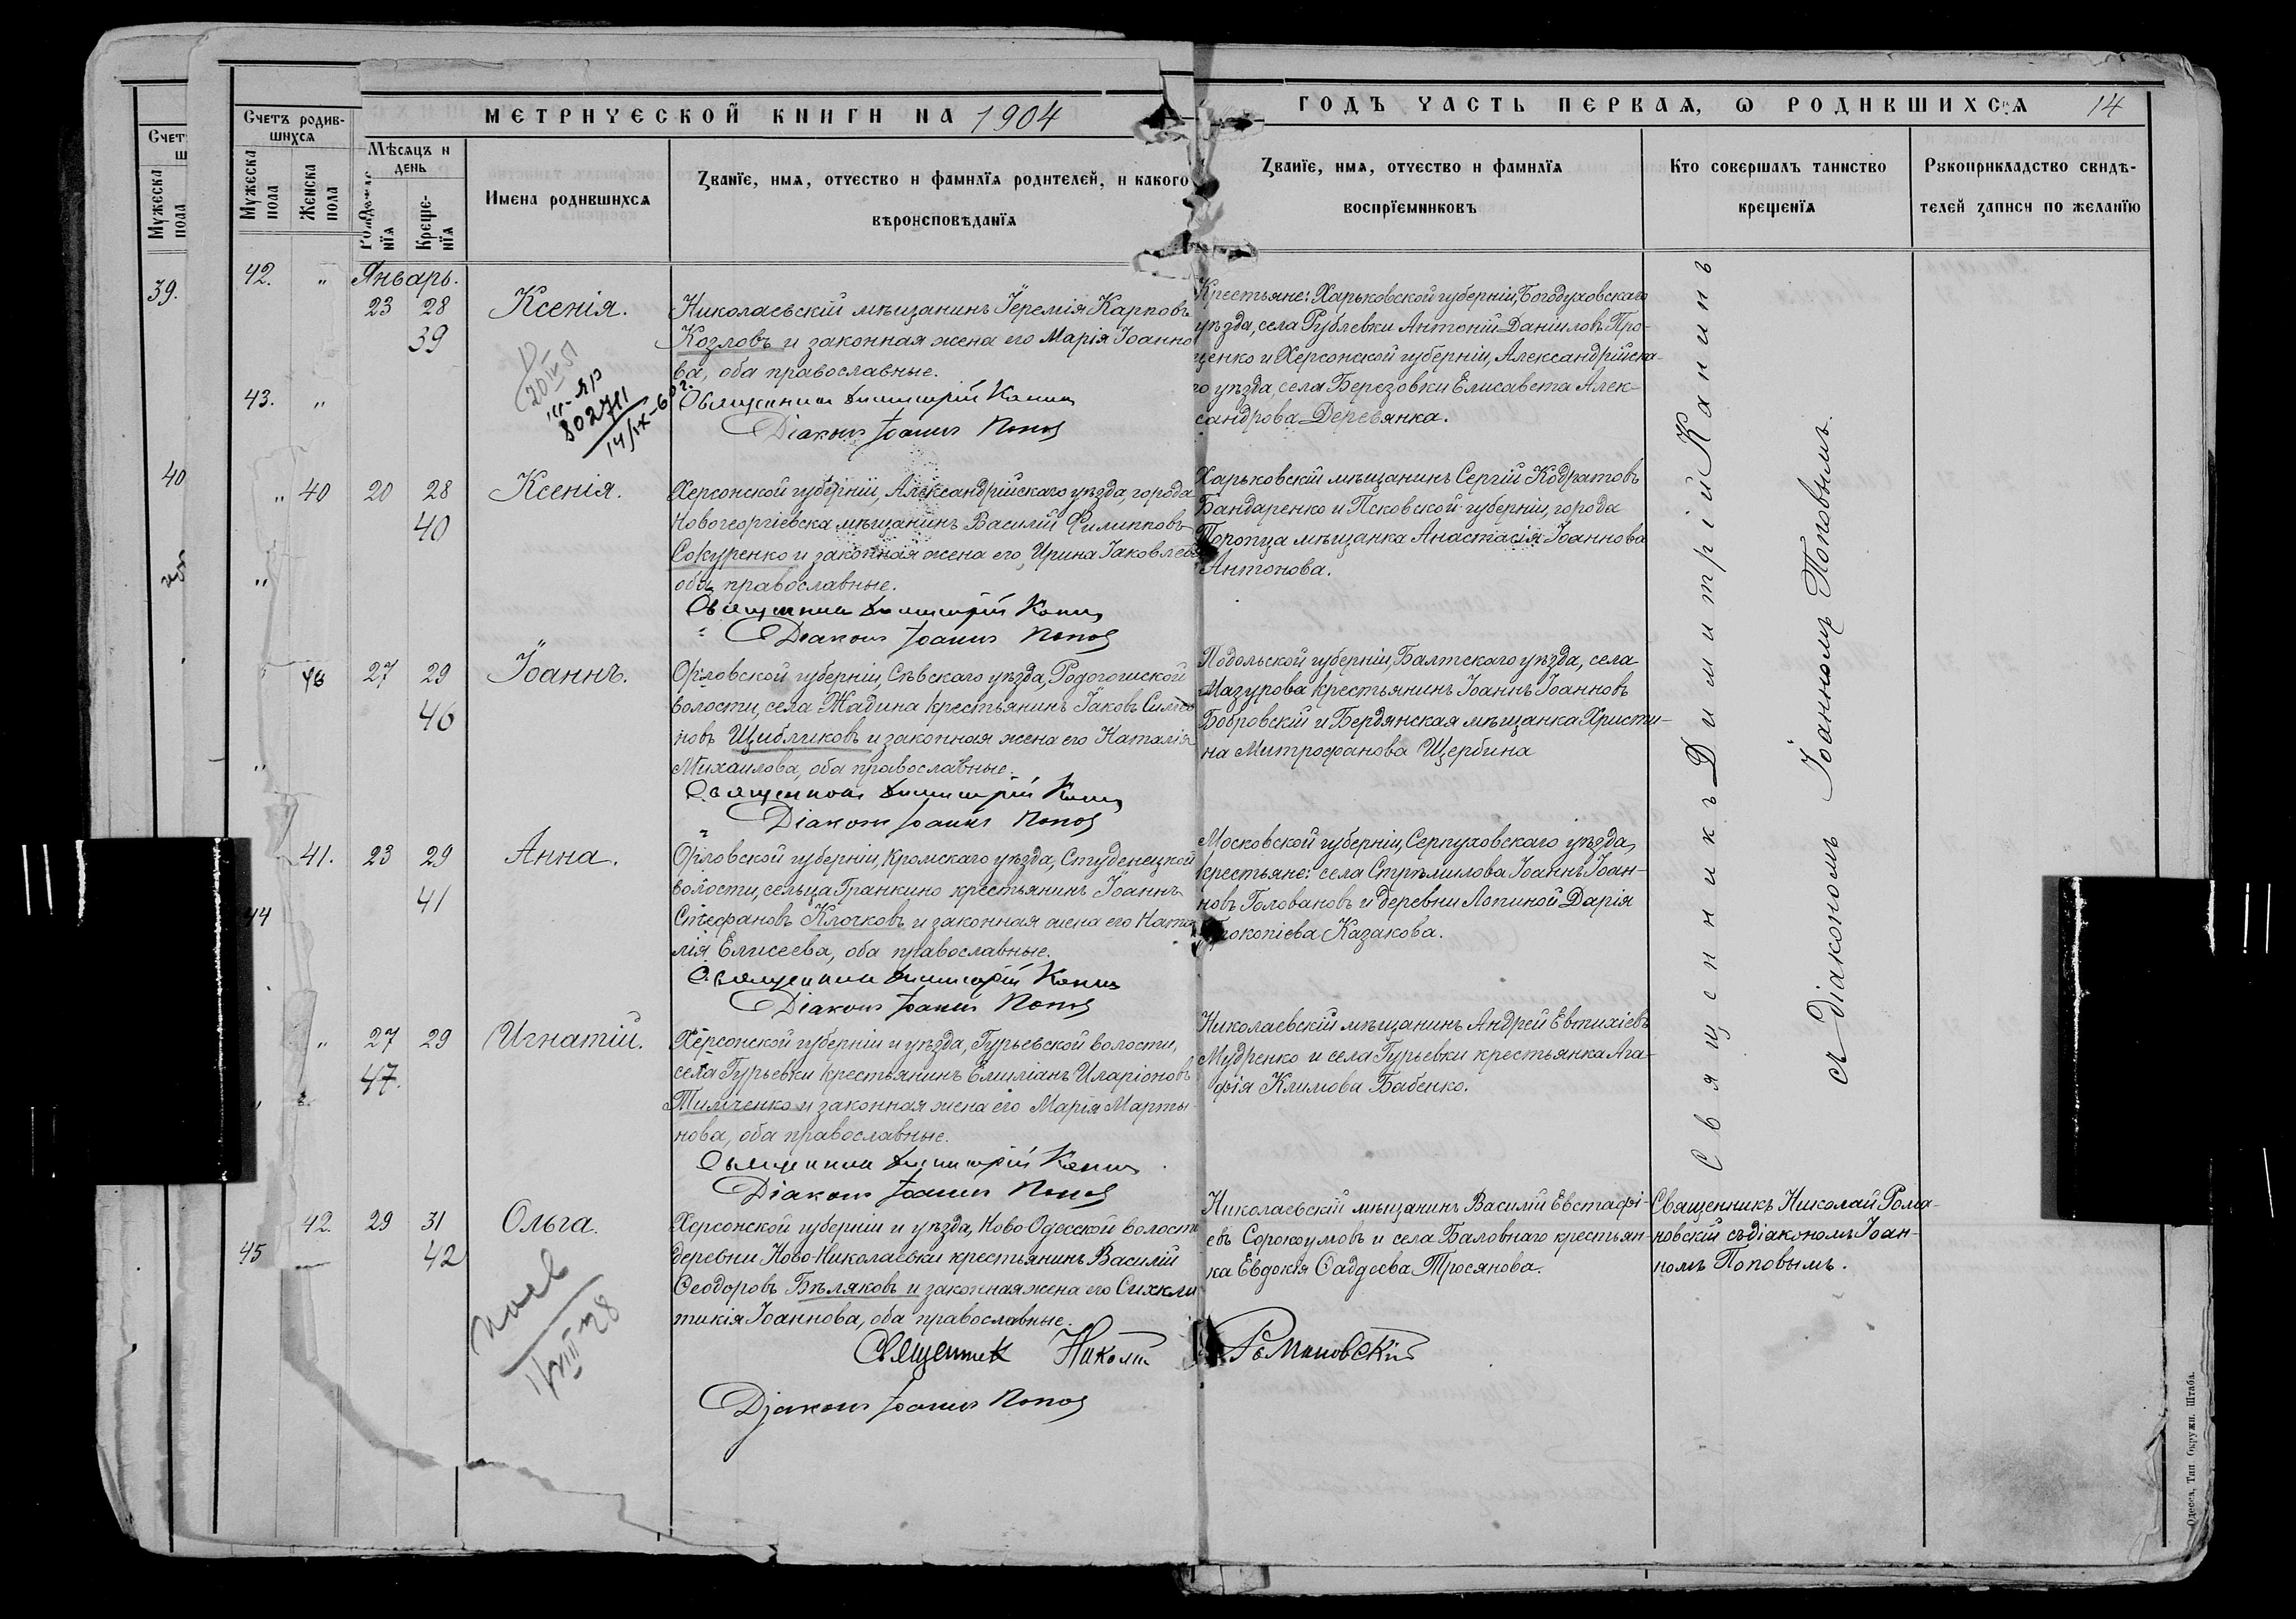 МЕТРИЧЕСКОЙ КНИГИ НА 1904
ГОДЪ ЧАСТЬ ПЕРВАЯ, Ѡ РОДИВШИХСЯ 14
Счетъ родив-
шихся
Мужеска
пола
Женска
пола
Мѣсяцъ и
день
Рожденїя
Креще-
нїя
Имена родившихся
Званїе, имя, отчество и фамилїя родителей, и какого
вѣроисповѣданїя
Званїе, имя, отчество и фамилїя
воспрїемниковъ
Кто совершалъ таинство
крещенїя
Рукоприкладство свидѣ-
телей записи по желанїю
Счет
ш
Мужеска
пола
39.
40
42. "
43. "
Январь.
23 28
39
Ксенія.
Николаевскій мѣщанинъ Іеремія Карповъ
Козловъ и законная жена его Марія Іоанно
ва, оба православные.
Священникъ Димитрій Канинъ
Діаконъ Іоаннъ Попов
80271
14/IX-60г.
Крестьяне: Харьковской губерніи, Богодуховскаго
уѣзда, села Рублевки Антоній Даніиловъ Про-
ценко и Херсонской губерніи, Александрійска-
го уѣзда, села Березовки Елисавета Алек-
сандрова Деревянка.
" 40 20 28
40
Ксенія.
Херсонской губерніи, Александрійскаго уѣзда, города
Новогеоргіевска мѣщанинъ Василій Филипповъ
Сокуренко и законная жена его, Ирина Іаковлева
оба православные.
Священникъ Димитрій Канинъ
Діаконъ Іоаннъ Попов
Харьковскій мѣщанинъ Сергій Кодратовъ
Бандаренко и Псковской губерніи, города
Торопца мѣщанка Анастасія Іоаннова
Антонова.
27 29
46
Іоаннъ.
Орловской губерніи, Сѣвскаго уѣзда, Родогошской
волости, села Жадина крестьянинъ Іаковъ Симео
новъ Щибликовъ и законная жена его Наталія
Михаилова, оба православные.
Священникъ Димитрій Канинъ
Діаконъ Іоаннъ Попов
Подольской губерніи, Балтскаго уѣзда, села
Мазурова крестьянинъ Іоаннъ Іоанновъ
Бобровскій и Бердянская мѣщанка Христи-
на Митрофанова Щербина
41. 23 29
41
Анна.
Орловской губерніи, Кромскаго уѣзда, Студенецкой
волости, сельца Гранкино крестьянинъ Іоаннъ
Стефановъ Клочковъ и законная жена его Ната
лія Елисеева, оба православные.
Священникъ Димитрій Канинъ
Діаконъ Іоаннъ Попов
Московской губерніи, Серпуховскаго уѣзда,
крестьяне: села Стрѣлилова Іоаннъ Іоан-
новъ Головановъ и деревни Лопиной Дарія
Прокопіева Казакова.
44
" 27 29
47.
Игнатій.
Херсонской губерніи и уѣзда, Гурьевской волости,
села Гурьевки крестьянинъ Емиліанъ Иларіоновъ
Тимченко и законная жена его Марія Марты-
нова, оба православные.
Священникъ Димитрій Канинъ
Діаконъ Іоаннъ Попов
Николаевскій мѣщанинъ Андрей Евтихіевъ
Мудренко и села Гурьевки крестьянка Ага-
фія Климова Бабенко.
Священникъ Димитрій Канинъ
съ Діакономъ Іоанномъ Поповымъ.
42. 29 31
45 42
Ольга.
VIII 28
Херсонской губерніи и уѣзда, Ново Одесской волости
деревни Ново-Николаевки крестьянинъ Василій
Ѳеодоровъ Бѣляковъ и законная жена его Сихкли
тикія Іоаннова, оба православные.
Священникъ Николай Романовскій
Діаконъ Іоаннъ Попов
Николаевскій мѣщанинъ Василій Евстафі-
евъ Сорокоумовъ и села Баловнаго крестьян-
ка Евдокія Ѳаддеева Тросянова.
Священникъ Николай Рома-
новскій съ діакономъ Іоан-
номъ Поповымъ.
Одесса, Тип. Окружн. Штаба.